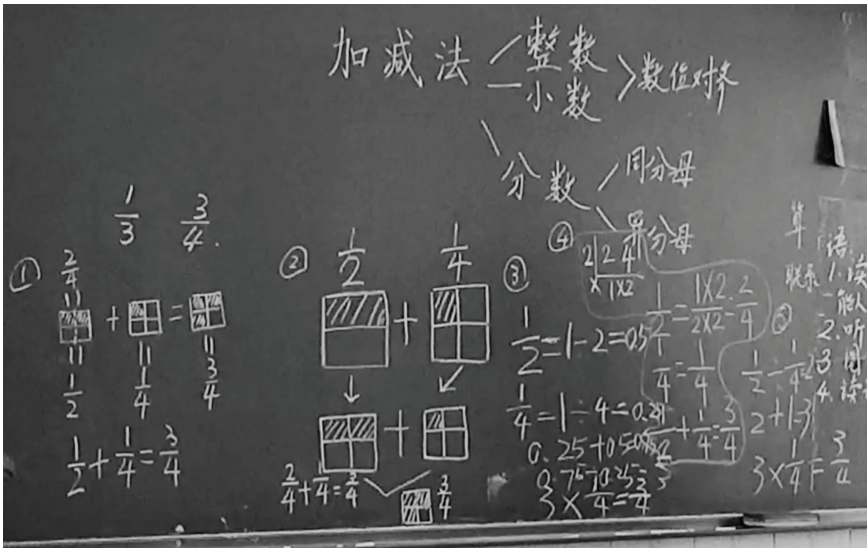 加减法
整数
小数
数位对齐
分数
同分母
异分母
1/3 3/4.
①
2/4
+ =
1/2 1/4 3/4
1/2+1/4=3/4
②
1/2 1/4
+
+
2/4+1/4=3/4
3/4
③
1/2=1÷2=0.5
1/4=1÷4=0.25
0.25+0.5=0.75
3×1/4=3/4
④
2|2 4
1×2
1/2=1×2/2×2=2/4
1/4=1/4
+1/4=3/4
⑤
1/2÷1/4=2
2+1=3
3×1/4=3/4
算
联系
语
1.
2.听
3.
4.读